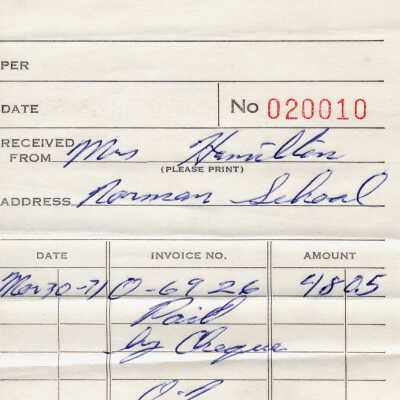 PER
DATE No 020010
RECEIVED FROM Mrs Hamilton
(PLEASE PRINT)
ADDRESS Norman School
DATE INVOICE NO. AMOUNT
Mar 30-71 0-6926 48 05
Paid
by Cheque